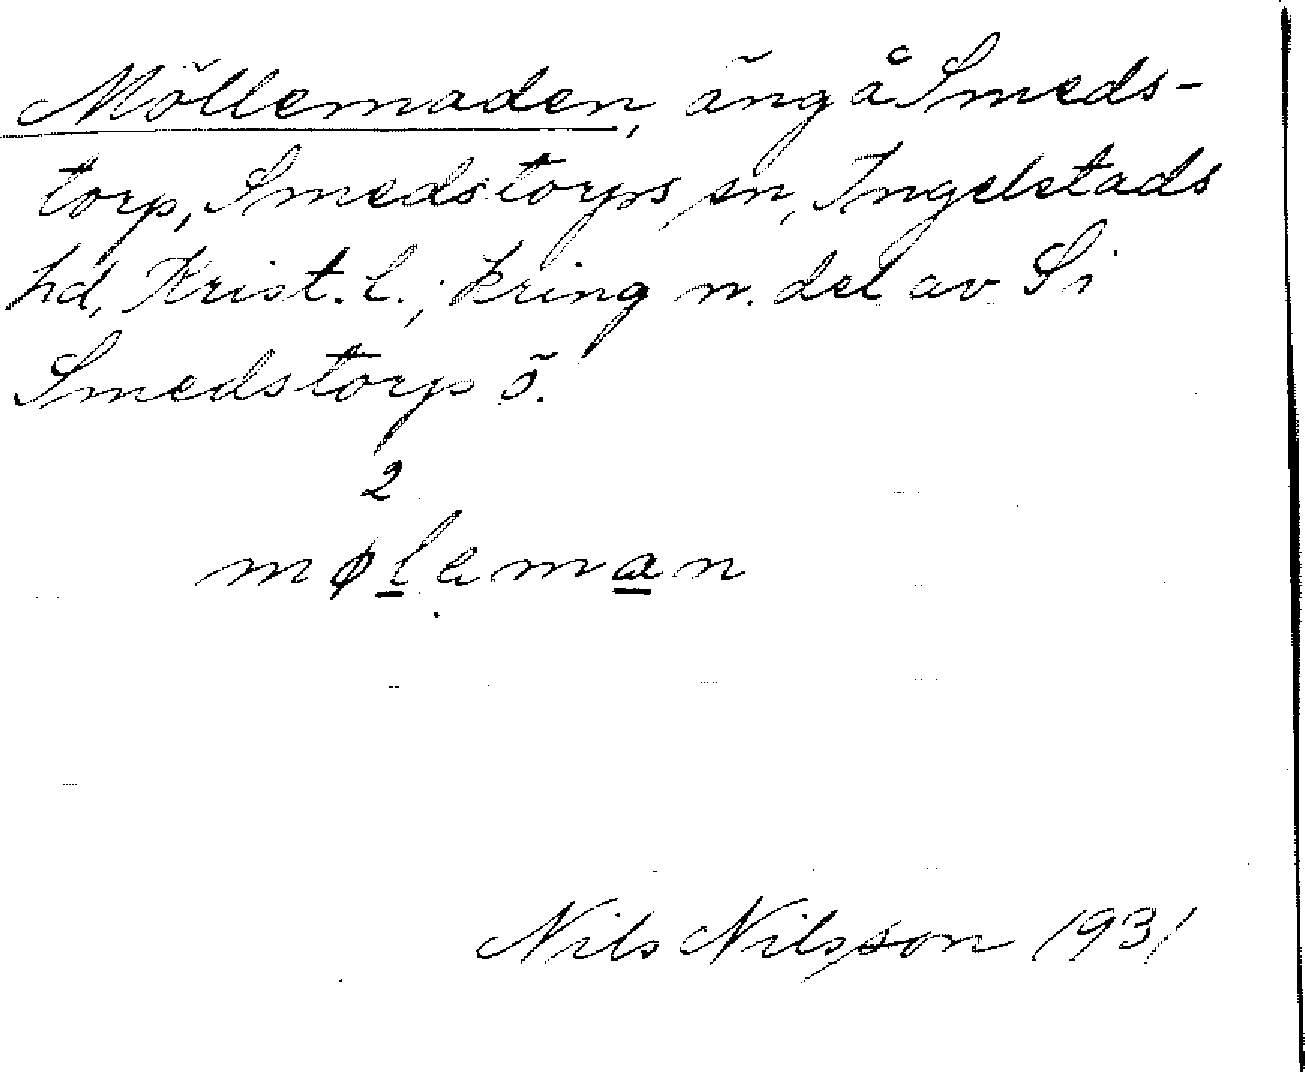 Möllemaden, äng å Smeds-
torp, Smedstorps sn, Ingelstads
hd, Krist. l.; kring n. del av Si
Smedstorp ö.
2
møleman
Nils Nilsson 1931